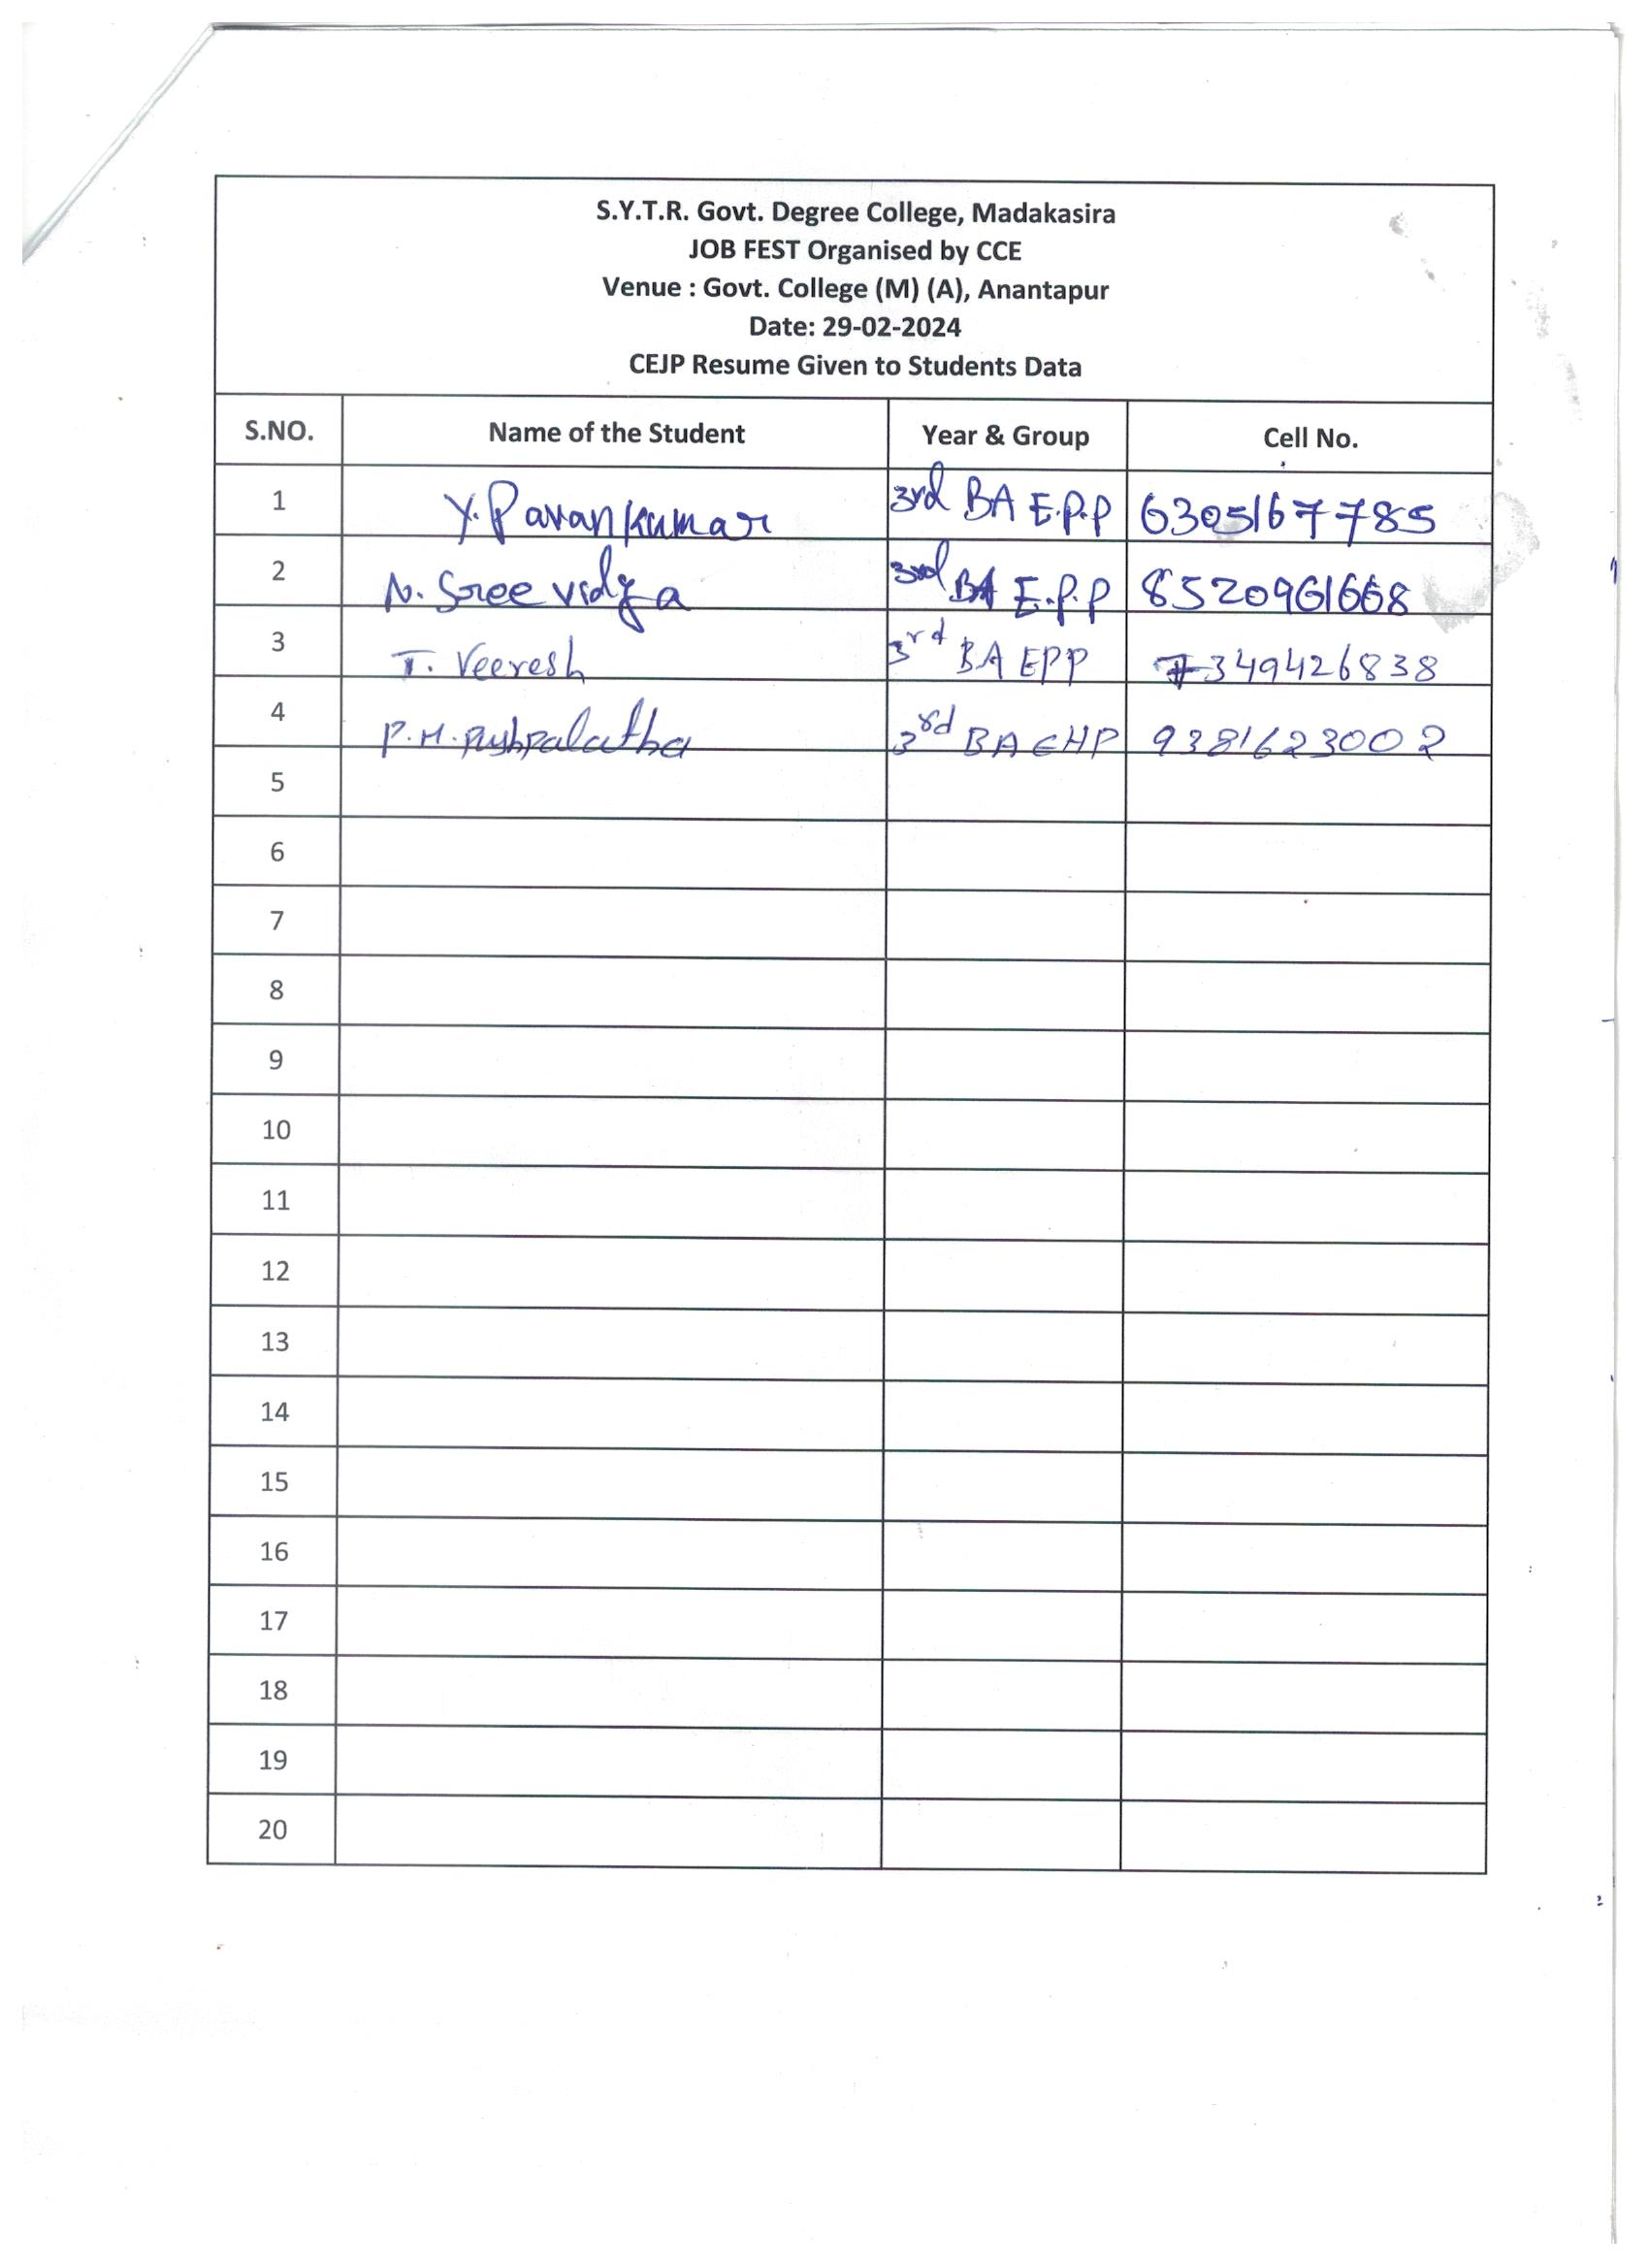 S.Y.T.R. Govt. Degree College, Madakasira
JOB FEST Organised by CCE
Venue : Govt. College (M) (A), Anantapur
Date: 29-02-2024
CEJP Resume Given to Students Data
S.NO. Name of the Student Year & Group Cell No.
1 Y. Pavan kumar 3rd BA E.P.P 6305167785
2 N. Sree vidya 3rd BA E.P.P 8520961668
3 T. Veeresh 3rd BA EPP 7349426838
4 P.H. Pushpalatha 3rd BA EHP 9381623002
5
6
7
8
9
10
11
12
13
14
15
16
17
18
19
20